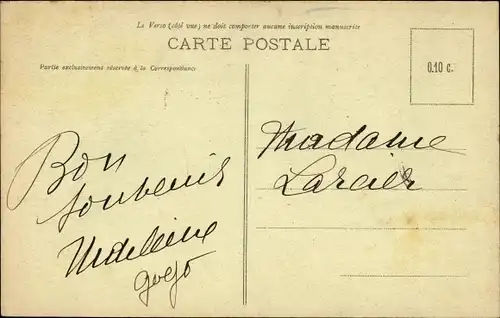 Le Verso (côté vue) ne doit comporter aucune inscription manuscrite
CARTE POSTALE
Partie exclusivement réservée à la Correspondance
0.10 c.
Bon
souvenir
Madeleine
gogo
Madame
Larcier